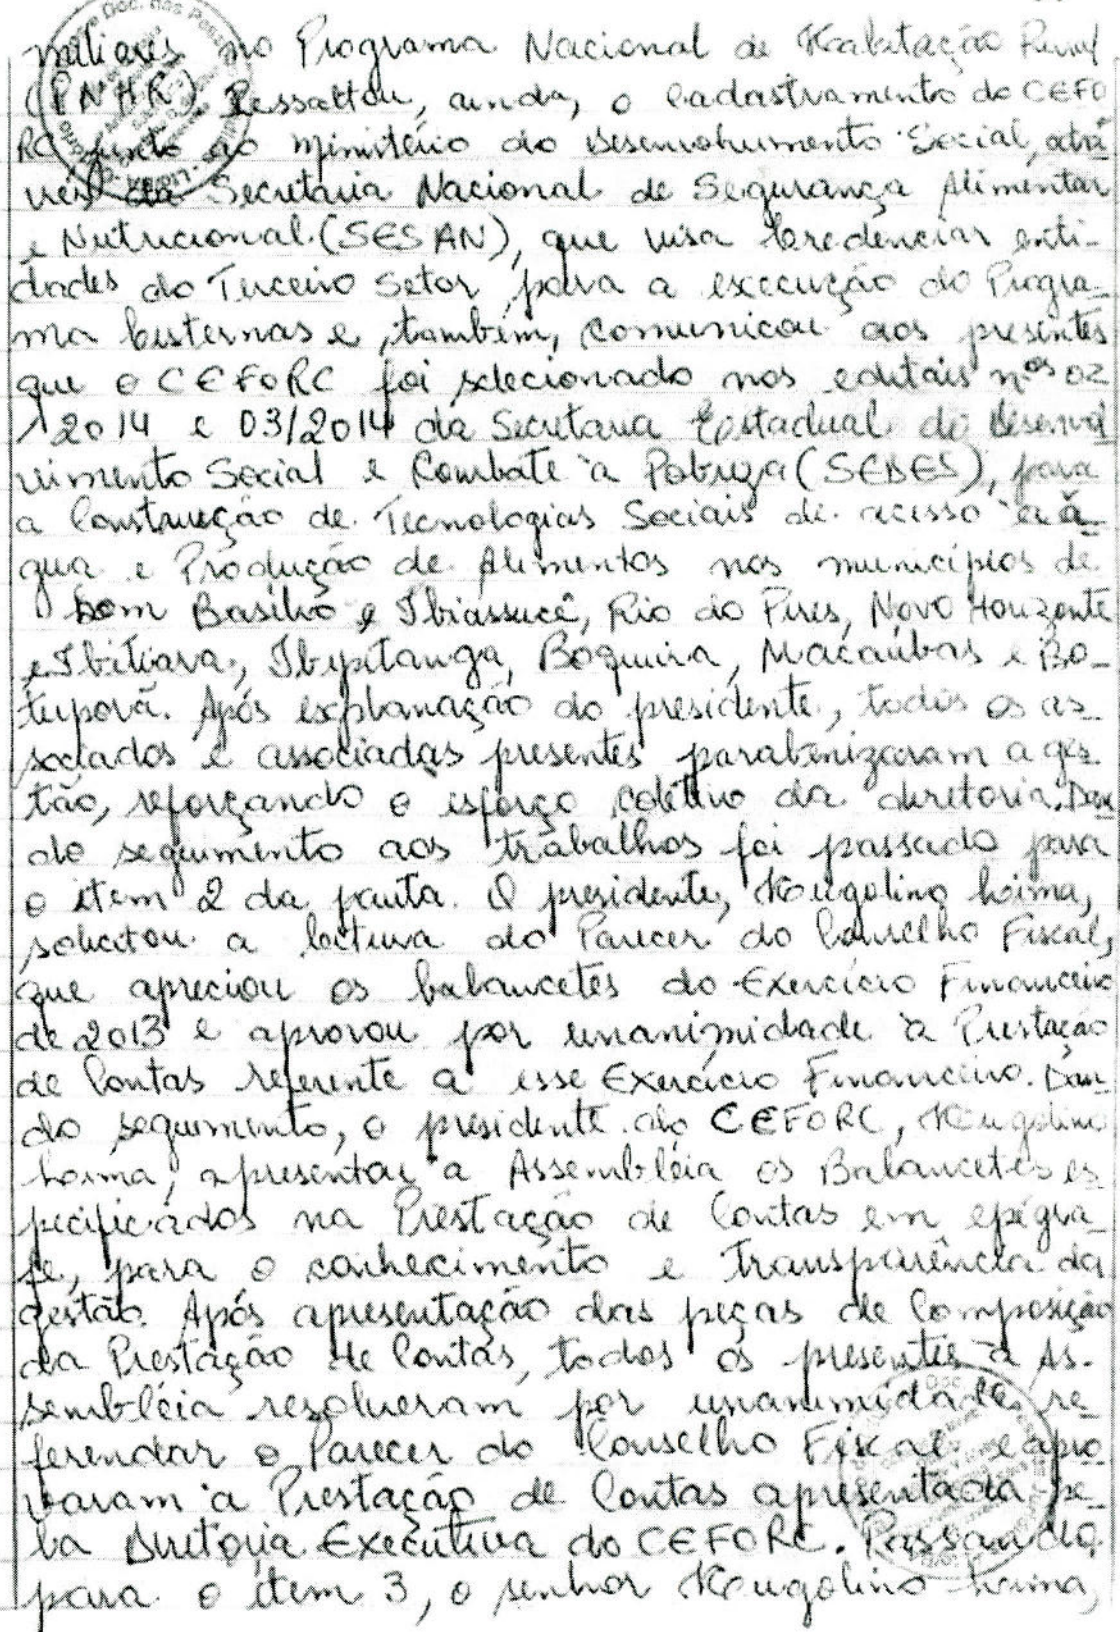 miliares no Programa Nacional de Habitação Rural
(PNHR) Ressaltou, ainda, o Cadastramento do CEFO
RC junto ao Ministério do Desenvolvimento Social, atra
vés da Secretaria Nacional de Segurança Alimentar
e Nutricional (SESAN), que visa Credenciar enti-
dades do Terceiro Setor para a execução do Progra-
ma Cisternas e, também, comunicou aos presentes
que o CEFORC foi selecionado nos editais nºs 02
/2014 e 03/2014 da Secretaria Estadual de Desenvol
vimento Social e Combate à Pobreza (SEDES), para
a Construção de Tecnologias Sociais de acesso a á-
gua e Produção de Alimentos nos municípios de
Dom Basílio e Ibiassucê, Rio do Pires, Novo Horizonte
e Ibitiara, Ibipitanga, Boquira, Macaúbas e Bo-
tuporã. Após explanação do presidente, todos os as-
sociados e associadas presentes parabenizaram a ges-
tão, reforçando o esforço coletivo da diretoria. Dan
do seguimento aos trabalhos foi passado para
o item 2 da pauta. O presidente, Heugolino Lima,
solicitou a leitura do Parecer do Conselho Fiscal,
que apreciou os balancetes do Exercício Financeiro
de 2013 e aprovou por unanimidade a Prestação
de Contas referente a esse Exercício Financeiro. Dan-
do seguimento, o presidente do CEFORC, Heugolino
Lima, apresentou a Assembléia os Balancetes es
pecificados na Prestação de Contas em epígra-
fe, para o conhecimento e transparência da
gestão. Após apresentação das peças de Composição
da Prestação de Contas, todos os presentes à As-
sembléia resolveram por unanimidade re-
ferendar o Parecer do Conselho Fiscal e apro
varam a Prestação de Contas apresentada pe-
la Diretoria Executiva do CEFORC. Passando,
para o item 3, o senhor Heugolino Lima,